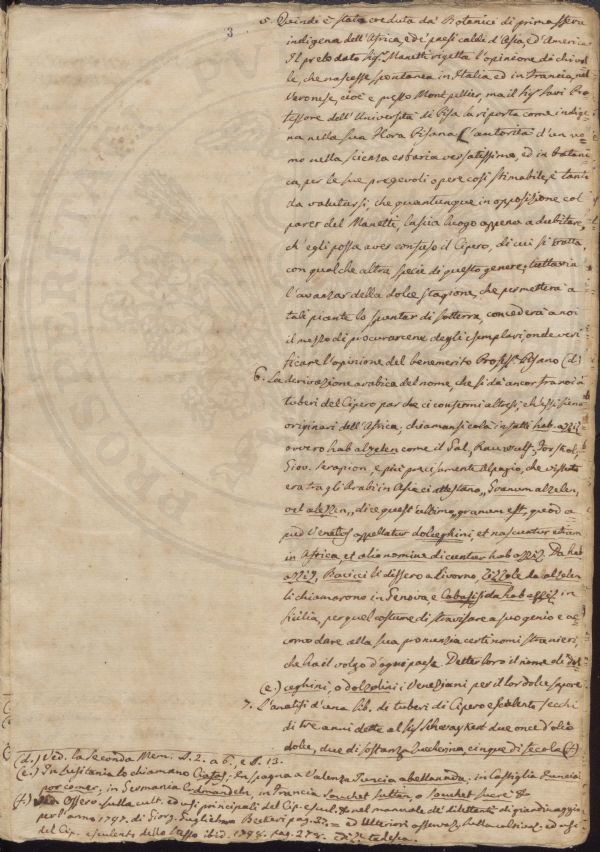 3
5. Quindi è stata creduta da' Botanici di prima sfera
indigena dell'Africa, ed e' paesi caldi d'Asia, ed America
Il prelodato Sig.r Manetti rigetta l'opinione di chi vol
le, che nascesse spontanea in Italia ed in Francia, nel
Veronese, cioè e presso Montpellier, ma il Sig. Savi Pro
fessore dell'Università di Pisa la riporta come indige=
na nella sua Flora Pisana. L'autorità d'un uo=
mo nella scienza erbaria versatissimo, ed in botani
ca, per le sue pregevoli opere così stimabile, è tanto
da valutarsi, che quantunque in opposizione col
parer del Manetti, lascia luogo appena a dubitare,
ch'egli possa aver confuso il Cipero, di cui si tratta,
con qualche altra specie di questo genere; tuttavia
l'avanzar della dolce stagione, che permetterà a
tali piante lo spuntar di sotterra, concederà a noi
il mezzo di procurarcene degli esemplari, onde veri
ficare l'opinione del benemerito Profess.e Pisano (d.)
6. La derivazione arabica del nome, che si dà ancor tra noi a'
tuberi del Cipero par che ci confermi altresì, ch'essi sieno
originari dell'Africa, chiamansi colà infatti hab-azziz
ovvero hab-alzelen come il Sal, Rauwulf, Forskol,
Giov. Serapion, e più precisamente Alpagio, che vissuto
era tra gli Arabi in Asia ci attestano, „Granum alzelen,
vel alezzin„ dice quest'ultimo, „granum est, quod a=
pud Venetos appellatur dolceghini, et nascuntur etiam
in Africa, et alio nomine dicuntur hab azziz. Da hab
azziz, Bacicci li dissero a Livorno, Zizzole da alzelen
li chiamarono in Genova, e Cabasisi da hab-azziz in
Sicilia, per quel costume di travisare a suo genio e ac
comodare alla sua pronunzia certi nomi stranieri,
che ha il volgo d'ogni paese. Detter loro il nome di dol
(e.) ceghini, o dolzolini i Veneziani per il lor dolce sapore
7. L'analisi d'una lib. di tuberi di Cipero esculento secchi
di tre anni dette al Sig. Schwaykert due once d'olio
dolce, due di sostanza zuccherina cinque di fecola (f)
(d.) Ved. la seconda Mem. §. 2. a 6., e §. 13.
(e.) In Lusitania lo chiamano; in Spagna a Valenza Juncia avellanada, in Castiglia Juncia
por comer, in Germania Erdmandeln, in Francia Souchet sultan o Souchet sucré &
(f) Osserv. sulla cult. ed usi principali del Cip. escul. & nel manuale de' dilettanti di giardinaggio
per l'anno 1797. di Giorg. Guglielmo pag. ed Ulteriori osservaz. sulla coltivaz. ed usi
del Cip. esculento dello stesso ibid. 1798. pag. 278. ediz. tedesca.